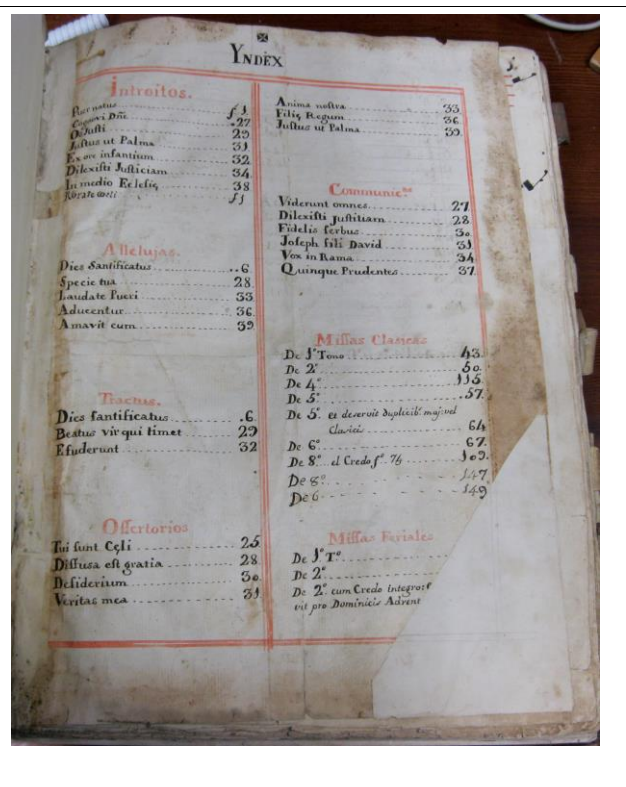 ✠
YNDEX
Introitos.
Puer natus f 1.
Cognovi Dñe .27
Os Justi 29
Justus ut Palma 31
Ex ore infantium 32
Dilexisti Justiciam 34
In medio Eclesię 38
Rorate coeli f 1
Allelujas.
Dies Santificatus ..6.
Specie tua 28.
Laudate Pueri 33.
Aducentur 36.
Amavit eum 39
Tractus.
Dies santificatus .6.
Beatus vir qui timet 29
Efuderunt 32
Offertorios
Tui sunt Cęli 25.
Diffusa est gratia 28.
Desiderium 30.
Veritas mea 31.
Anima nostra 33
Filię Regum 36
Justus ut Palma 39.
Communic.
Viderunt omnes 27.
Dilexisti Justitiam 28.
Fidelis serbus 30.
Joseph fili David 31.
Vox in Rama 34
Quinque Prudentes 37.
Missas Clasicas
De 1.º Tono 43.
De 2.º 50.
De 4.º 115.
De 5.º .57.
De 5.º et deservit duplicib. maj. vel
Clasicis 64
De 6.º 67.
De 8.º el Credo, fº 76 109.
De 8.º 147
De 6 149
Missas Feriales
De 1.º T.º
De 2.º
De 2.º cum Credo integro
vit pro Dominicis Advent